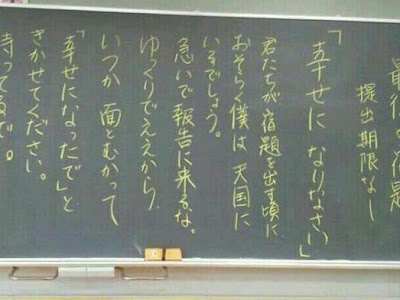 最後の宿題
提出期限なし
「幸せになりなさい」
君たちが宿題を出す頃に
おそらく僕は天国に
いるでしょう。
急いで報告に来るな。
ゆっくりでええから
いつか面とむかって
「幸せになったで」と
きかせてください。
待ってるで。